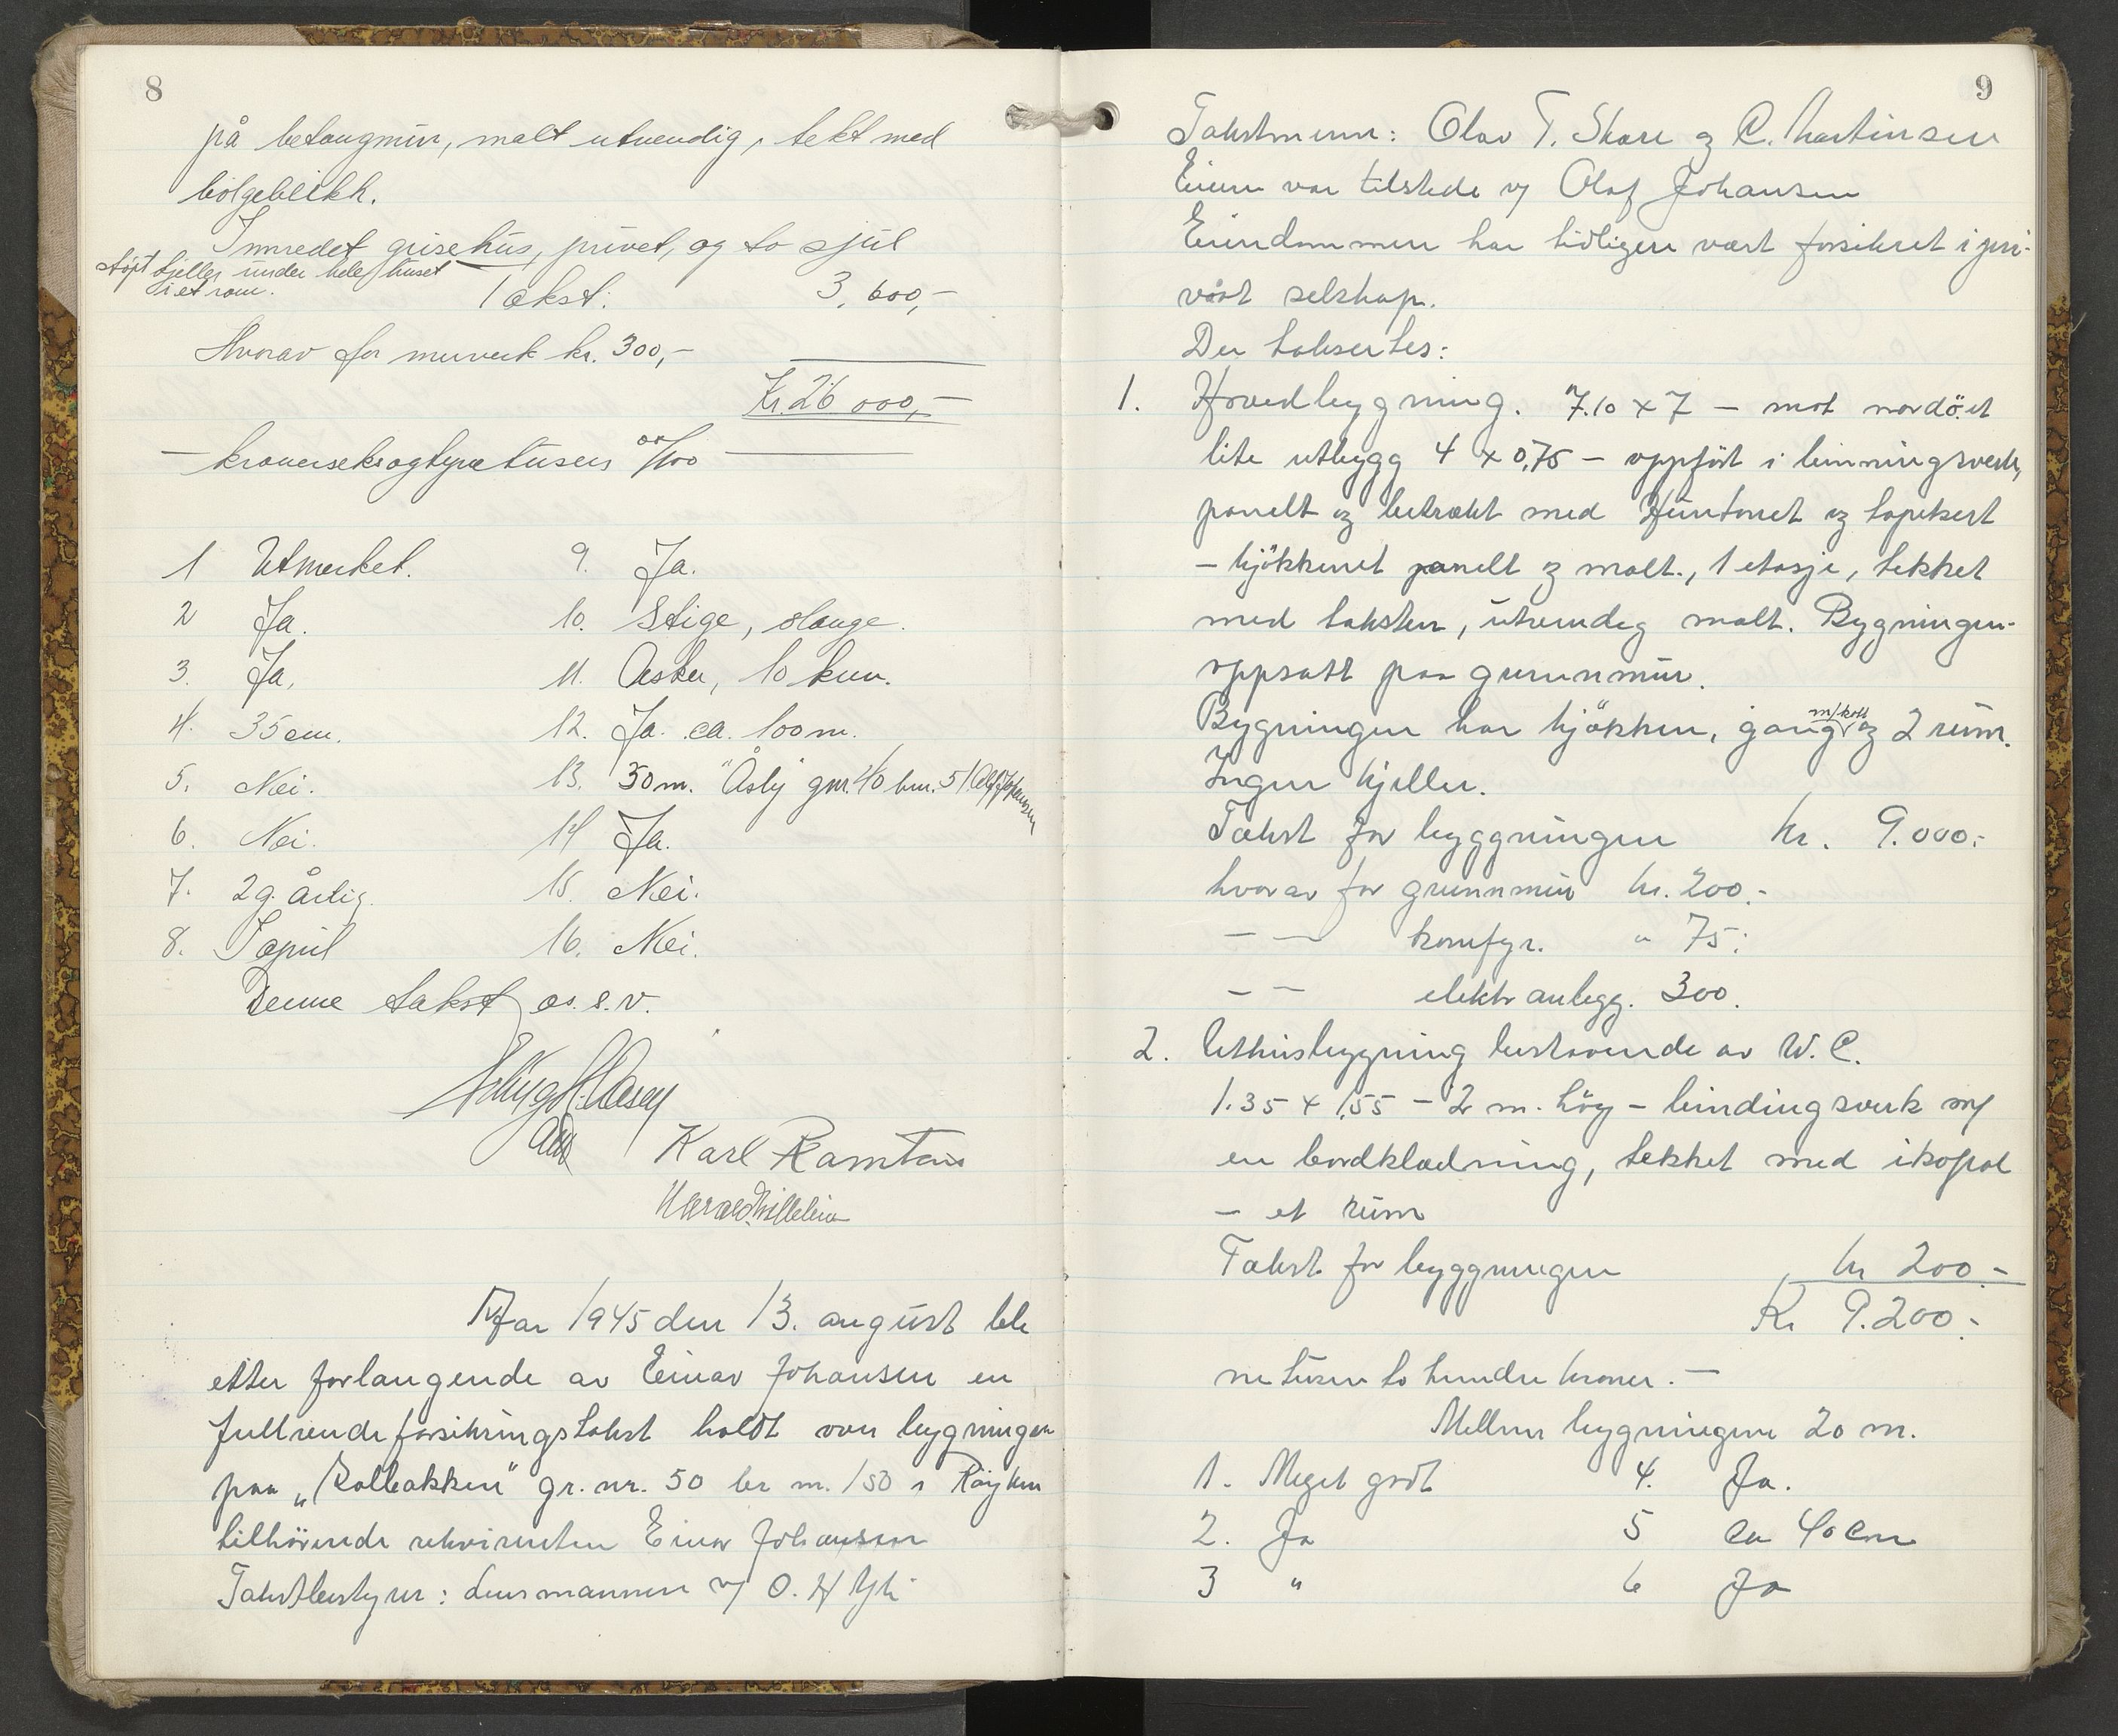 8
på betongmur, malt utvendig, tekt med
bölgeblikk.
Innredet grisehus, privet, og to sjul
støpt kjeller under hele huset
i et rom.
Takst: 3.600,-
Hvorav for murverk kr. 300,-
Kr. 26 000,-
— kronerseksogtyvetusen 00/100 —
1 Utmerket. 9. Ja.
2 Ja. 10. Stige, slange.
3. Ja. 11. Asker, 10 km.
4. 35 cm. 12. Ja. ca. 100 m.
5. Nei. 13. 50 m. "Åsly" gnr. 40 bnr. 51
6. Nei. 14 Ja.
7. 2 g. årlig. 15. Nei.
8. I april 16. Nei.
Denne takst o. s. v.
Karl Ramton
Harald
Aar 1945 den 13. august ble
etter forlangende av Einar Johansen en
fullvende forsikringstakst holdt over bygningen
paa „Kolbakken" gr. nr. 50 br nr. 150 i Röyken
tilhörende rekvirenten Einar Johansen
Takstbestyrer: Lensmannen v/ O. H.
9
Takstmenn: Olav T. Skare og C. Martinsen
Eieren var tilstede v/ Olaf Johansen
Eiendommen har tidligere vært forsikret i pri-
vat selskap.
Der taksertes:
1. Hovedbygning. 7.10 x 7 — mot nordö. et
lite utbygg 4 x 0,75 — oppfört i binningsverk,
panelt og betrækt med Huntonet og tapetsert
— kjökkenet panelt og malt., 1 etasje, tekket
med taksten, utvendig malt. Bygningen
oppsatt paa grunnmur.
Bygningen har kjökken, gang m/kott og 2 rum.
Ingen kjeller.
Takst for byggningen kr. 9.000:
hvorav for grunnmur kr. 200.-
— — komfyr. " 75:
— — elektr anlegg. 300.
2. Uthusbygning bestaaende av W. C.
1.35 x 1,55 — 2 m. höy — bindingsverk m/
en bordklædning, tekket med ikopal
— et rum
Takst for byggningen kr 200 -
Kr 9.200:
ni tusen to hundre kroner. —
Mellem bygningene 20 m.
1. Meget godt 4. Ja.
2. Ja 5 ca 40 cm
3 " 6 Ja